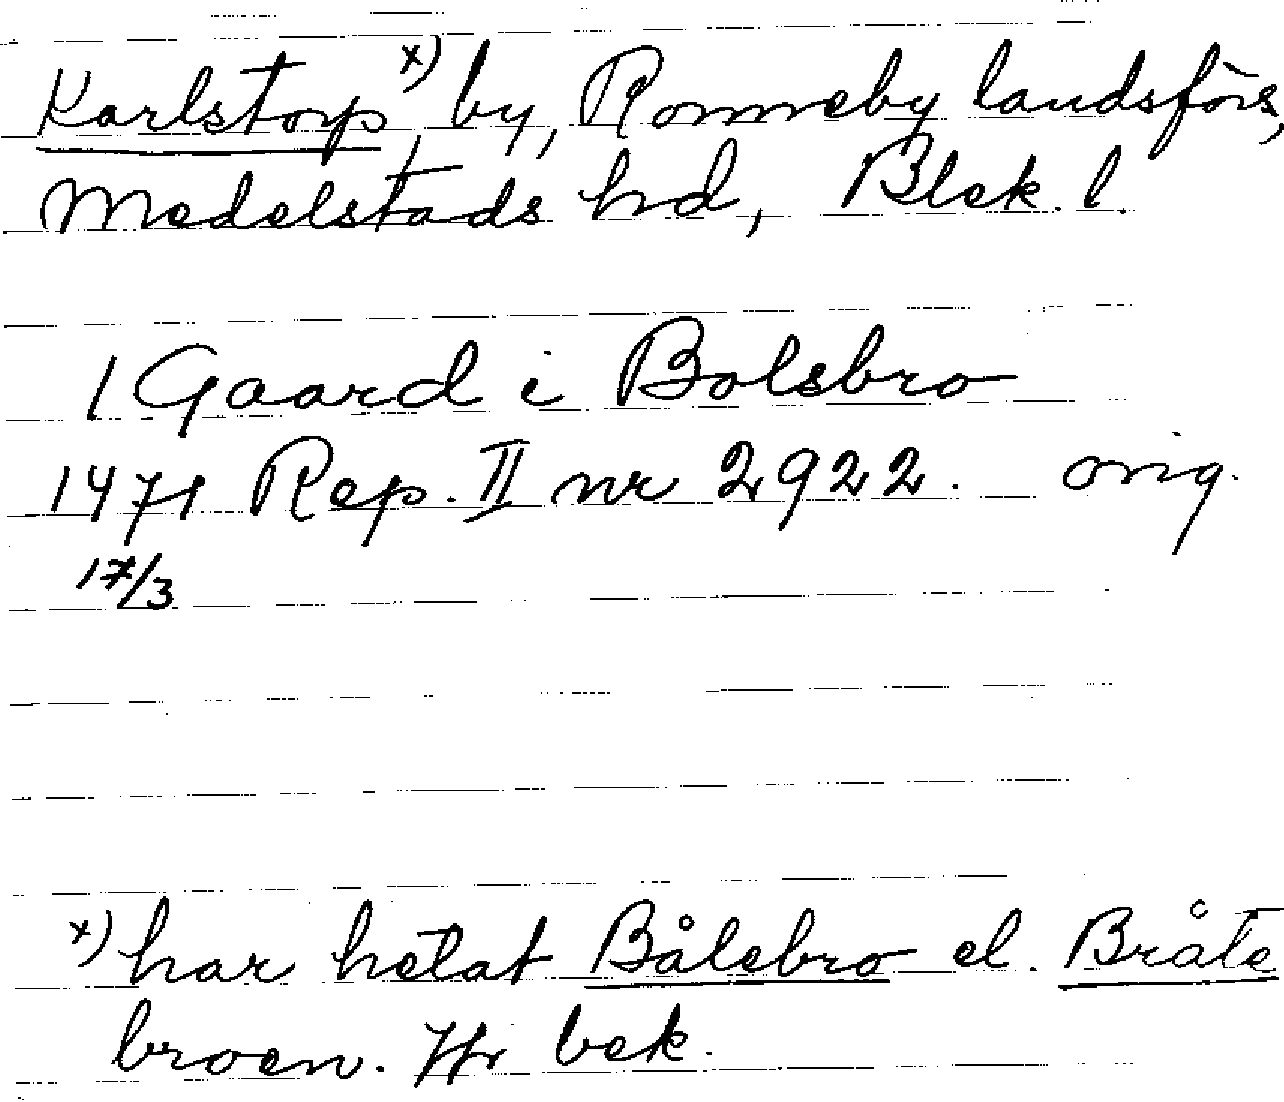 Karlstorp x) by, Ronneby landsförs,
Medelstads hd, Blek. l.
1 Gaard i Bolsbro
1471 Rep. II nr 2922. orig.
17/3
x) har hetat Bålebro el. Bråte
broen. Jfr bek.